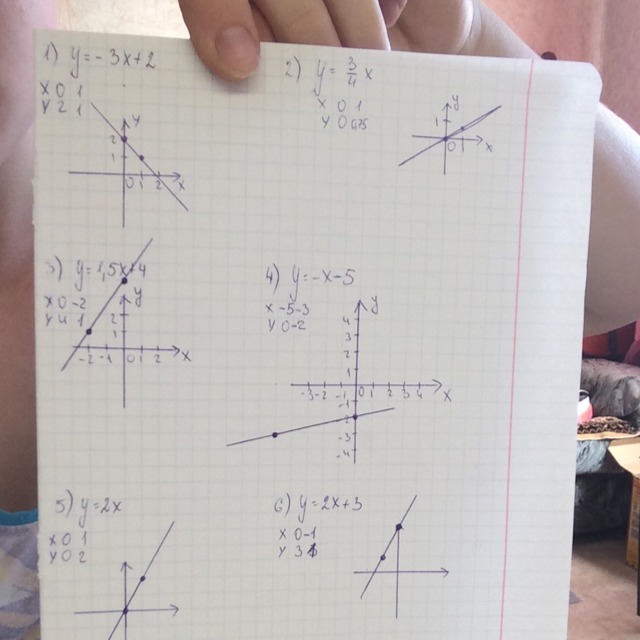 1) y=-3x+2
x 0 1
y 2 1
y
2
1
0 1 2 x
2) y=3/4x
x 0 1
y 0 0,75
y
1
0 x
3) y=1,5x+4
x 0 -2
y 4 1
y
2
1
-2 -1 0 1 2 x
4) y=-x-5
x -5 -3
y 0 -2
y
4
3
2
1
-3 -2 -1 0 1 2 3 4 x
-1
-3
-4
5) y=2x
x 0 1
y 0 2
6) y=2x+3
x 0 -1
y 3 1